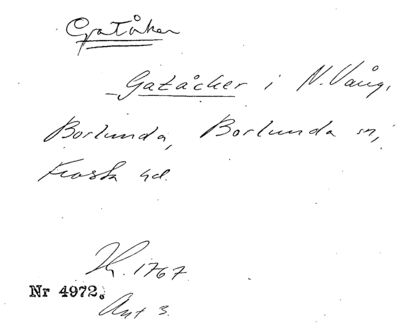 Gatåker
Gatåcker i N. Vång,
Borlunda, Borlunda sn,
Frosta hd.
1767
Nr 4972.
Akt 3.